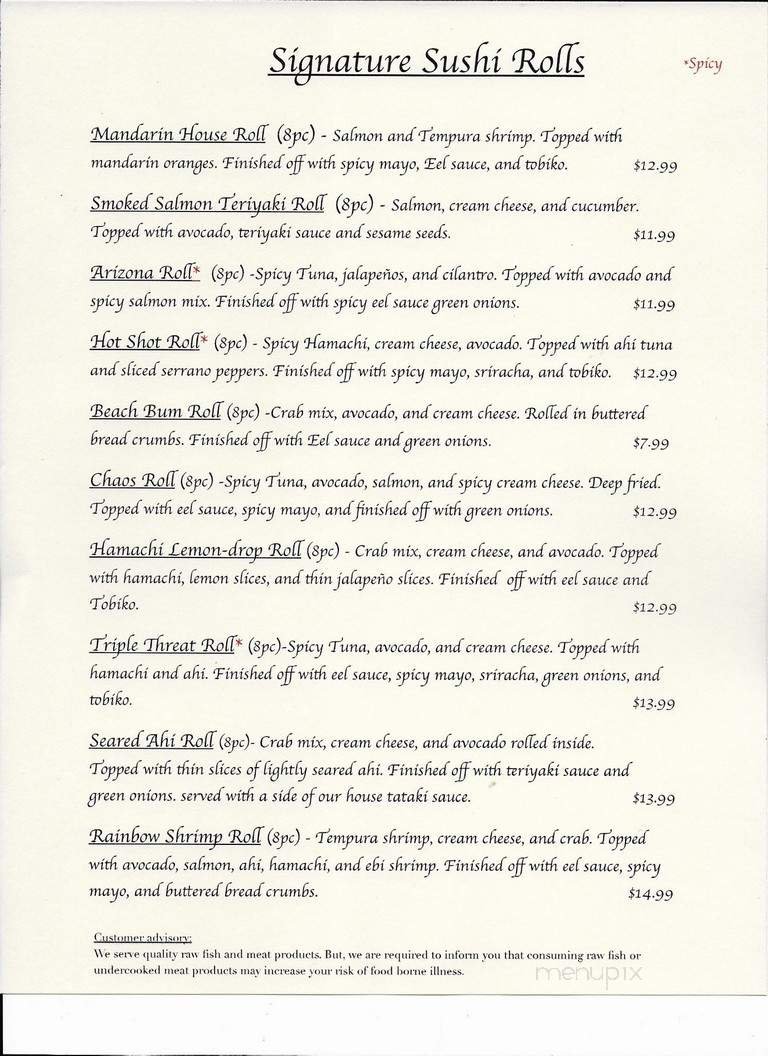 Signature Sushi Rolls
*Spicy
Mandarin House Roll (8pc) - Salmon and Tempura shrimp. Topped with
mandarin oranges. Finished off with spicy mayo, Eel sauce, and tobiko. $12.99
Smoked Salmon Teriyaki Roll (8pc) - Salmon, cream cheese, and cucumber.
Topped with avocado, teriyaki sauce and sesame seeds. $11.99
Arizona Roll* (8pc) -Spicy Tuna, jalapeños, and cilantro. Topped with avocado and
spicy salmon mix. Finished off with spicy eel sauce green onions. $11.99
Hot Shot Roll* (8pc) - Spicy Hamachi, cream cheese, avocado. Topped with ahi tuna
and sliced serrano peppers. Finished off with spicy mayo, sriracha, and tobiko. $12.99
Beach Bum Roll (8pc) -Crab mix, avocado, and cream cheese. Rolled in buttered
bread crumbs. Finished off with Eel sauce and green onions. $7.99
Chaos Roll (8pc) -Spicy Tuna, avocado, salmon, and spicy cream cheese. Deep fried.
Topped with eel sauce, spicy mayo, and finished off with green onions. $12.99
Hamachi Lemon-drop Roll (8pc) - Crab mix, cream cheese, and avocado. Topped
with hamachi, lemon slices, and thin jalapeño slices. Finished off with eel sauce and
Tobiko. $12.99
Triple Threat Roll* (8pc)-Spicy Tuna, avocado, and cream cheese. Topped with
hamachi and ahi. Finished off with eel sauce, spicy mayo, sriracha, green onions, and
tobiko. $13.99
Seared Ahi Roll (8pc)- Crab mix, cream cheese, and avocado rolled inside.
Topped with thin slices of lightly seared ahi. Finished off with teriyaki sauce and
green onions. served with a side of our house tataki sauce. $13.99
Rainbow Shrimp Roll (8pc) - Tempura shrimp, cream cheese, and crab. Topped
with avocado, salmon, ahi, hamachi, and ebi shrimp. Finished off with eel sauce, spicy
mayo, and buttered bread crumbs. $14.99
Customer advisory:
We serve quality raw fish and meat products. But, we are required to inform you that consuming raw fish or
undercooked meat products may increase your risk of food borne illness.
menupix